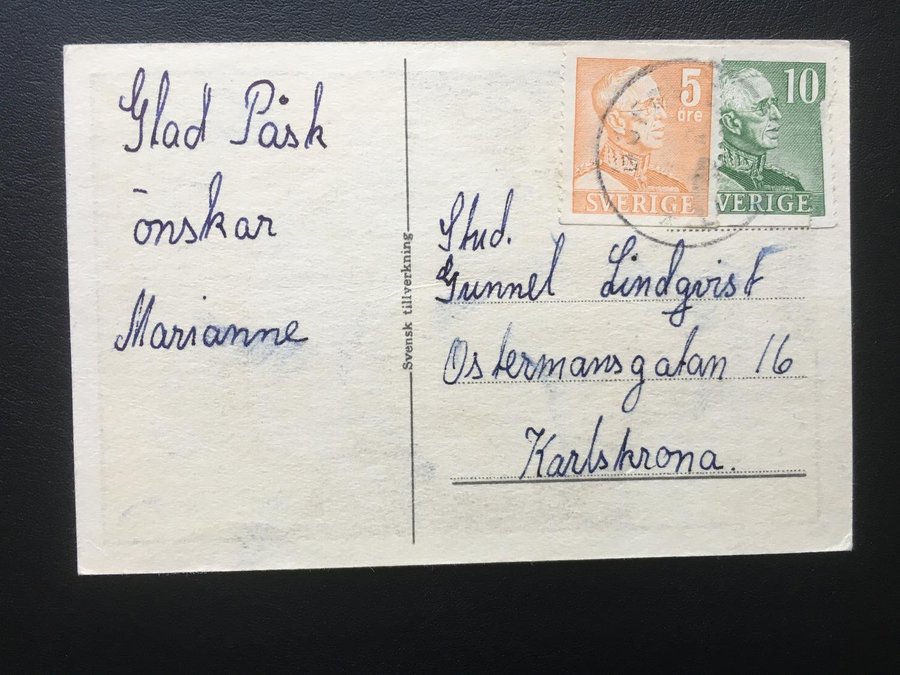 Glad Påsk
önskar
Marianne
Svensk tillverkning
5
öre
SVERIGE
10
VERIGE
Stud.
Gunnel Lindqvist
Ostermansgatan 16
Karlskrona.